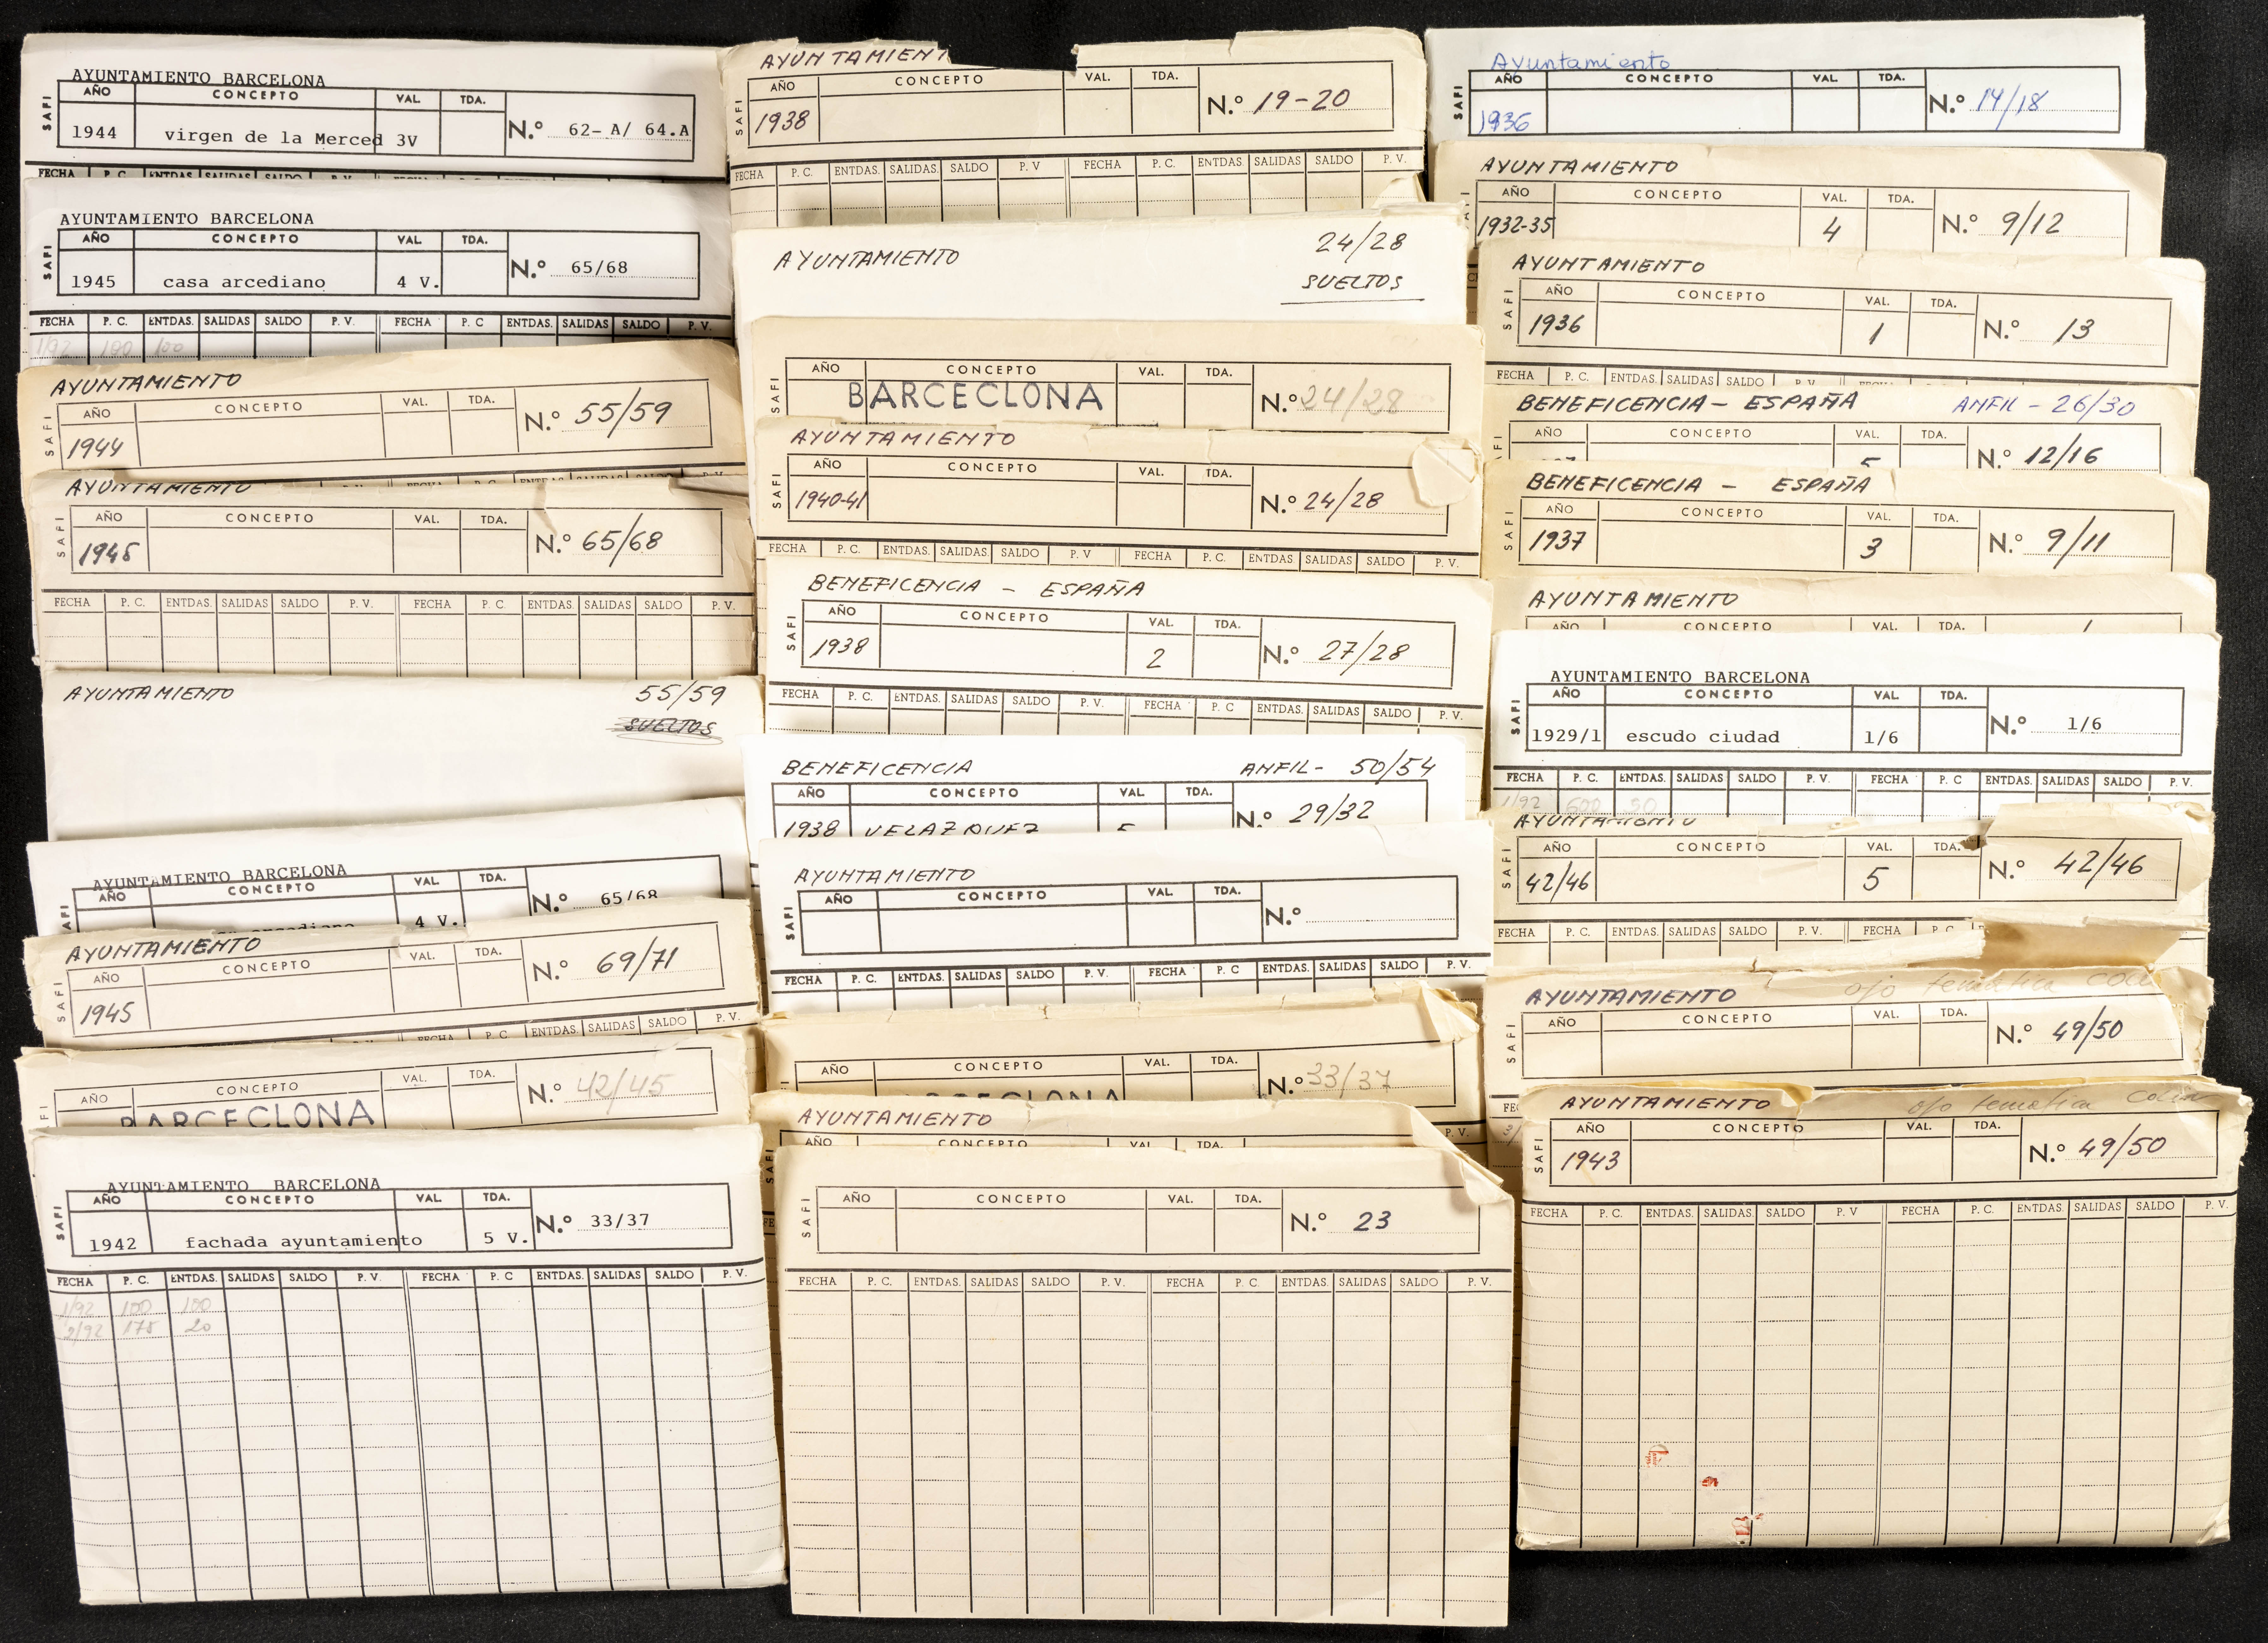 AYUNTAMIENTO BARCELONA
SAFI
AÑO CONCEPTO VAL TDA.
1944 virgen de la Merced 3V N.º 62-A/ 64.A
FECHA P. C. ENTDAS. SALIDAS SALDO P. V.
AYUNTAMIENTO BARCELONA
SAFI
AÑO CONCEPTO VAL TDA.
1945 casa arcediano 4 V. N.º 65/68
FECHA P. C. ENTDAS. SALIDAS SALDO P. V. FECHA P. C ENTDAS. SALIDAS SALDO P. V.
1/92 100 100
AYUNTAMIENTO
SAFI
AÑO CONCEPTO VAL. TDA.
1944 N.º 55/59
AYUNTAMIENTO
SAFI
AÑO CONCEPTO VAL. TDA.
1945 N.º 65/68
FECHA P. C. ENTDAS. SALIDAS SALDO P. V. FECHA P. C. ENTDAS. SALIDAS SALDO P. V.
AYUNTAMIENTO 55/59
SUELTOS
AYUNTAMIENTO BARCELONA
AÑO CONCEPTO VAL TDA.
4 V. N.º 65/68
AYUNTAMIENTO
SAFI
AÑO CONCEPTO VAL. TDA.
1945 N.º 69/71
FECHA P. C ENTDAS. SALIDAS SALDO P. V.
AÑO CONCEPTO VAL. TDA.
BARCECLONA N.º 42/45
AYUNTAMIENTO BARCELONA
SAFI
AÑO CONCEPTO VAL. TDA.
1942 fachada ayuntamiento 5 V. N.º 33/37
FECHA P. C. ENTDAS. SALIDAS SALDO P. V. FECHA P. C ENTDAS. SALIDAS SALDO P. V.
1/92 100 100
2/92 175 20
AYUNTAMIENT
SAFI
AÑO CONCEPTO VAL. TDA.
1938 N.º 19-20
FECHA P. C. ENTDAS. SALIDAS. SALDO P. V FECHA P. C. ENTDAS. SALIDAS SALDO P. V.
24/28
AYUNTAMIENTO
SUELTOS
SAFI
AÑO CONCEPTO VAL. TDA.
BARCECLONA N.º 24/28
AYUNTAMIENTO
SAFI
AÑO CONCEPTO VAL. TDA.
1940-41 N.º 24/28
FECHA P. C. ENTDAS. SALIDAS SALDO P. V FECHA P. C. ENTDAS SALIDAS SALDO P. V.
BENEFICENCIA - ESPAÑA
SAFI
AÑO CONCEPTO VAL. TDA.
1938 2 N.º 27/28
FECHA P. C. ENTDAS. SALIDAS SALDO P. V. FECHA P. C ENTDAS. SALIDAS SALDO P. V.
BENEFICENCIA ANFIL- 50/54
AÑO CONCEPTO VAL. TDA.
1938 VELAZQUEZ 5 N.º 29/32
AYUNTAMIENTO
SAFI
AÑO CONCEPTO VAL TDA.
N.º
FECHA P. C. ENTDAS. SALIDAS SALDO P. V. FECHA P. C ENTDAS. SALIDAS SALDO P. V.
AÑO CONCEPTO VAL. TDA.
N.º 33/37
AYUNTAMIENTO
AÑO CONCEPTO VAL TDA.
SAFI
AÑO CONCEPTO VAL. TDA.
N.º 23
FECHA P. C. ENTDAS. SALIDAS SALDO P. V. FECHA P. C. ENTDAS. SALIDAS SALDO P. V.
Ayuntamiento
SAFI
AÑO CONCEPTO VAL TDA.
1936 N.º 14/18
AYUNTAMIENTO
AÑO CONCEPTO VAL. TDA.
1932-35 4 N.º 9/12
AYUNTAMIENTO
SAFI
AÑO CONCEPTO VAL. TDA.
1936 1 N.º 13
FECHA P. C. ENTDAS. SALIDAS SALDO P. V. FECHA
BENEFICENCIA - ESPAÑA ANFIL - 26/30
AÑO CONCEPTO VAL. TDA.
5 N.º 12/16
BENEFICENCIA - ESPAÑA
SAFI
AÑO CONCEPTO VAL. TDA.
1937 3 N.º 9/11
AYUNTAMIENTO
AÑO CONCEPTO VAL. TDA.
AYUNTAMIENTO BARCELONA
SAFI
AÑO CONCEPTO VAL TDA.
1929/1 escudo ciudad 1/6 N.º 1/6
FECHA P. C. ENTDAS. SALIDAS SALDO P. V. FECHA P. C ENTDAS. SALIDAS SALDO P. V.
1/92 600 50
AYUNTAMIENTO
SAFI
AÑO CONCEPTO VAL. TDA.
42/46 5 N.º 42/46
FECHA P. C. ENTDAS. SALIDAS SALDO P. V. FECHA P. C
AYUNTAMIENTO ojo tematica
SAFI
AÑO CONCEPTO VAL. TDA.
N.º 49/50
AYUNTAMIENTO ojo tematica Colon
SAFI
AÑO CONCEPTO VAL. TDA.
1943 N.º 49/50
FECHA P. C. ENTDAS. SALIDAS. SALDO P. V FECHA P. C. ENTDAS. SALIDAS SALDO P. V.